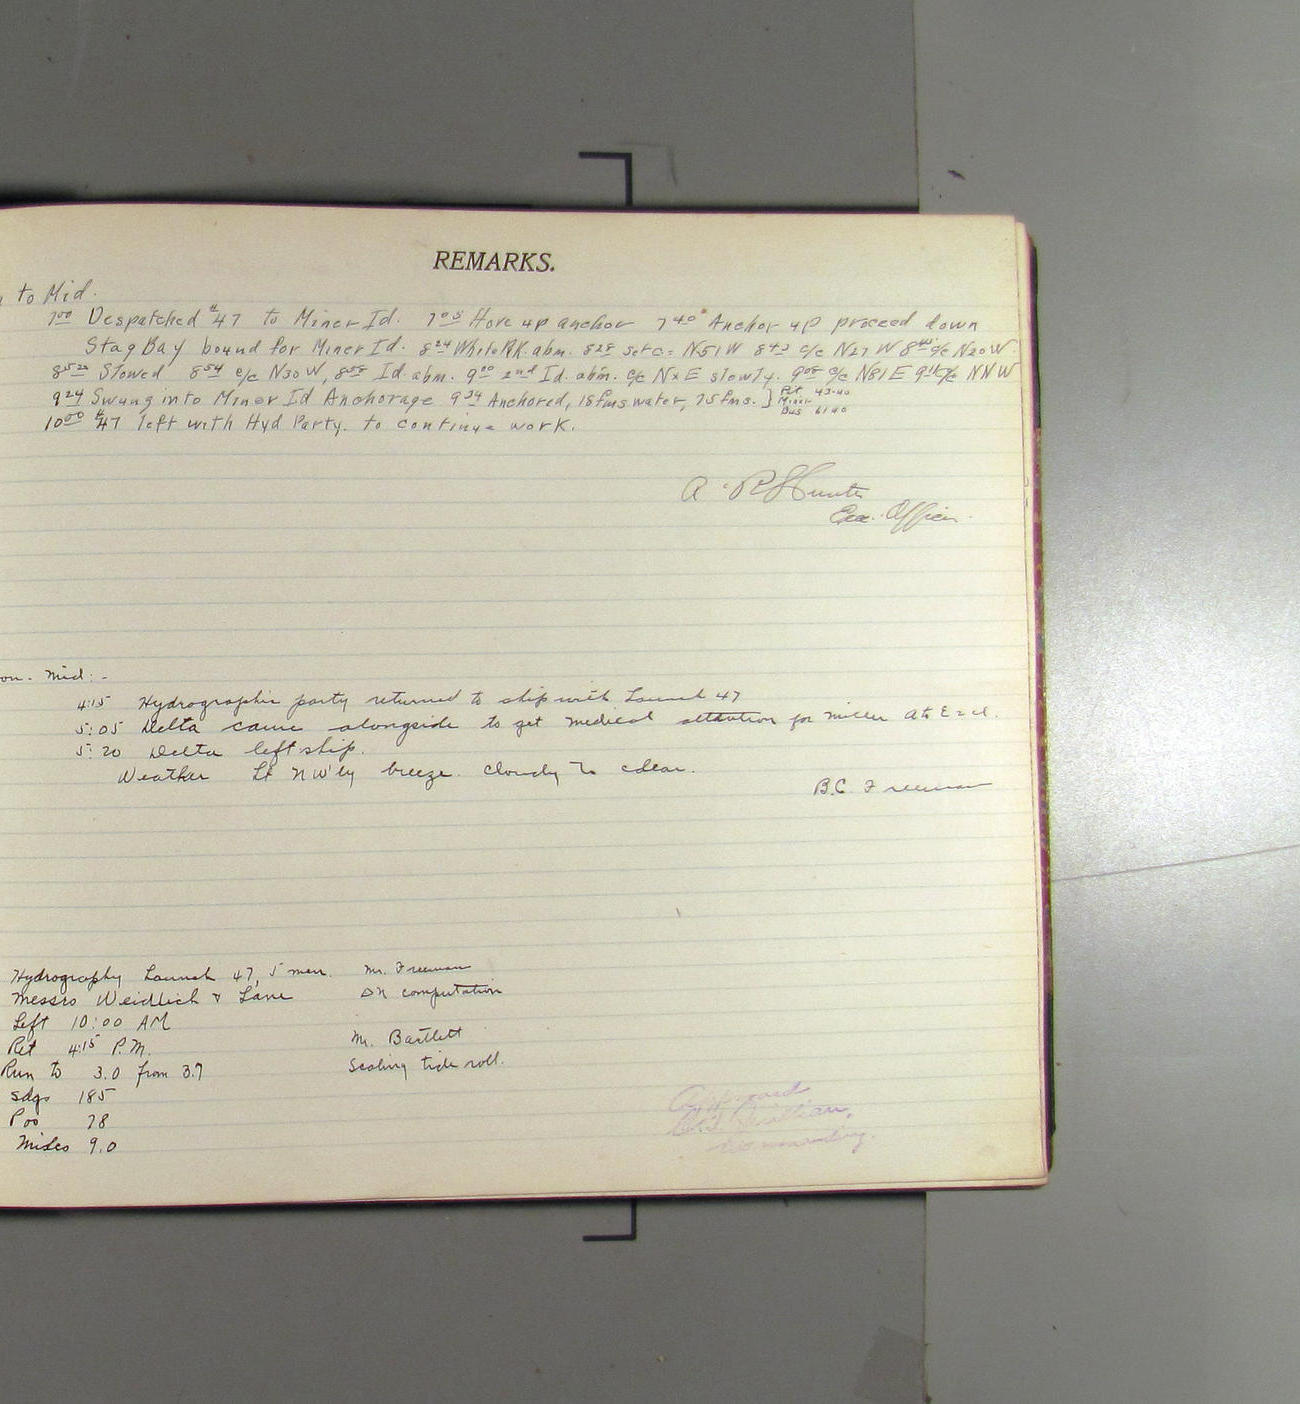 REMARKS.
to Mid.
7⁰⁰ Despatched #47 to Miner Id. 7⁰⁵ Hove up anchor 7⁴⁰ Anchor up proceed down
Stag Bay bound for Miner Id. 8²⁴ White Rk. abm. 8²⁸ set c= N51W 8⁴³ c/c N27W c/c N20W.
8⁵²  Slowed 8⁵⁴ c/c N30W, 8⁵⁸ Id. abm. 9⁰⁰ 2nd Id. abm. c/c NxE slowly. 9⁰⁸ c/c N81E c/c NNW
9²⁴ Swung into Miner Id Anchorage 9³⁴ Anchored, 18 fms water, 75 fms. }
10⁰⁰ #47 left with Hyd Party. to continue work.
Hunter
Exe. Officer.
Mid:-
4:15 Hydrographic party returned to ship with Launch 47
5:05 Delta came alongside to get medical attention for
5:20 Delta left ship.
Weather Lt NW'ly breeze. cloudy to clear.
B.C. Freeman
Hydrography Launch 47, 5 men. Mr. Freeman
Messrs Weidlich & Lane computation
Left 10:00 AM
Ret 4:15 P.M. Mr. Bartlett
Run to 3.0 from 3.7 Scaling tide roll.
Sdgs 185
Pos 78
Miles 9.0
Approved
Commanding.